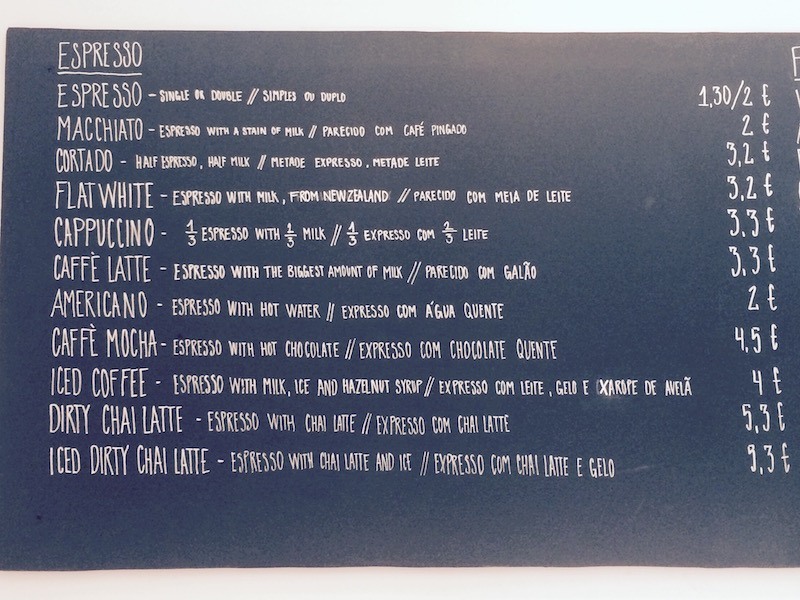 ESPRESSO
ESPRESSO - SINGLE OR DOUBLE // SIMPLES OU DUPLO 1,30/2 €
MACCHIATO - ESPRESSO WITH A STAIN OF MILK // PARECIDO COM CAFÉ PINGADO 2 €
CORTADO - HALF ESPRESSO, HALF MILK // METADE EXPRESSO, METADE LEITE 3,2 €
FLAT WHITE - ESPRESSO WITH MILK, FROM NEW ZEALAND // PARECIDO COM MEIA DE LEITE 3,2 €
CAPPUCCINO - 1/3 ESPRESSO WITH 2/3 MILK // 1/3 EXPRESSO COM 2/3 LEITE 3,3 €
CAFFÈ LATTE - ESPRESSO WITH THE BIGGEST AMOUNT OF MILK // PARECIDO COM GALÃO 3,3 €
AMERICANO - ESPRESSO WITH HOT WATER // EXPRESSO COM ÁGUA QUENTE 2 €
CAFFÈ MOCHA - ESPRESSO WITH HOT CHOCOLATE // EXPRESSO COM CHOCOLATE QUENTE 4,5 €
ICED COFFEE - ESPRESSO WITH MILK, ICE AND HAZELNUT SYRUP // EXPRESSO COM LEITE, GELO E XAROPE DE AVELÃ 4 €
DIRTY CHAI LATTE - ESPRESSO WITH CHAI LATTE // EXPRESSO COM CHAI LATTE 5,3 €
ICED DIRTY CHAI LATTE - ESPRESSO WITH CHAI LATTE AND ICE // EXPRESSO COM CHAI LATTE E GELO